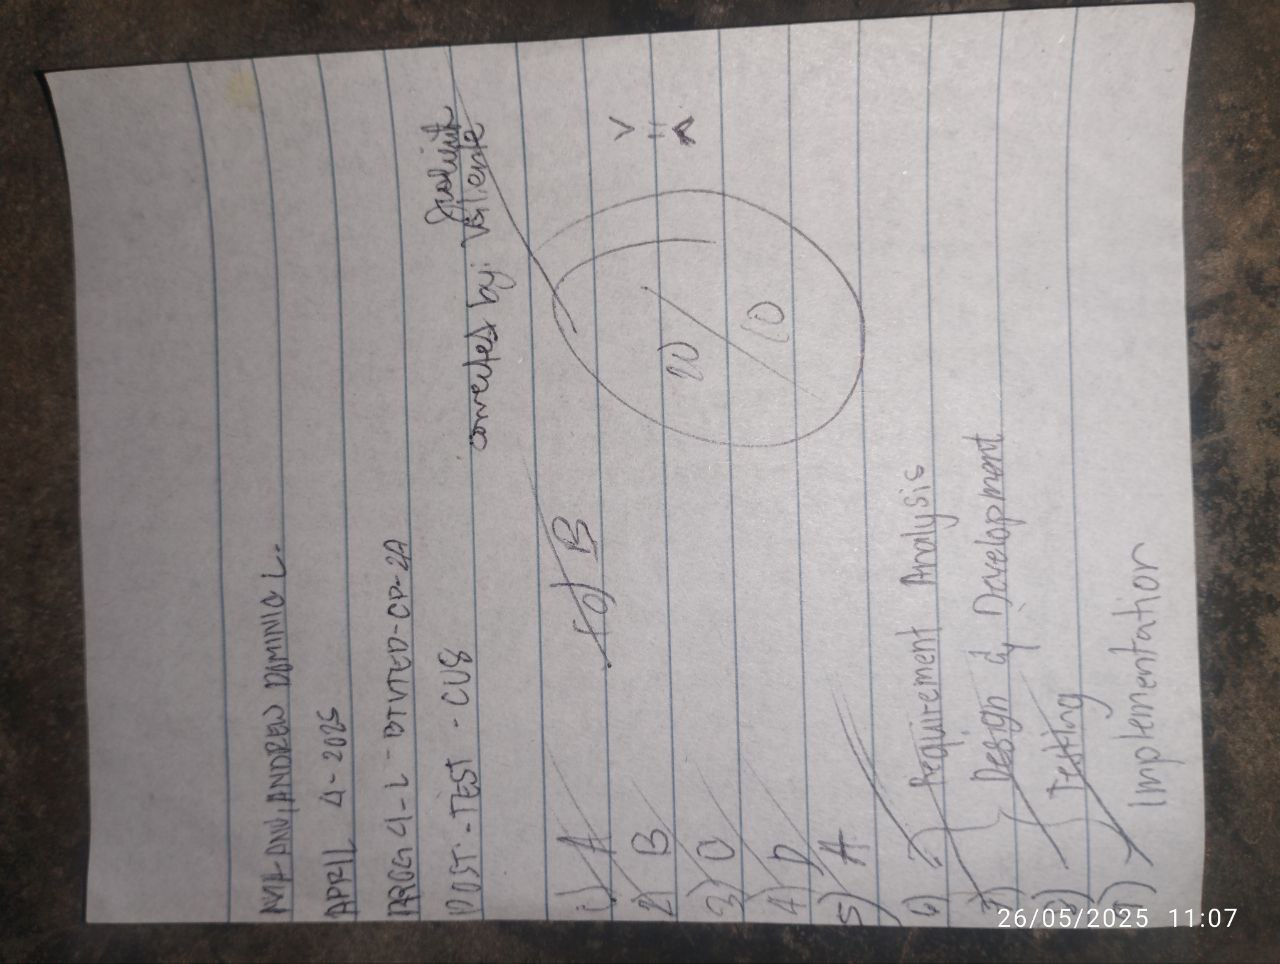 ANDREW DOMINIC L.
APRIL 4-2025
PROG 4-L - BTVTED-CP-2A
POST-TEST - CU8
corrected by: Valiente
1) A
2) B
3) C
4) D
5) A
6) Requirement Analysis
7) Design & Development
8) Testing
9) Implementation
10) B
10
10
26/05/2025 11:07